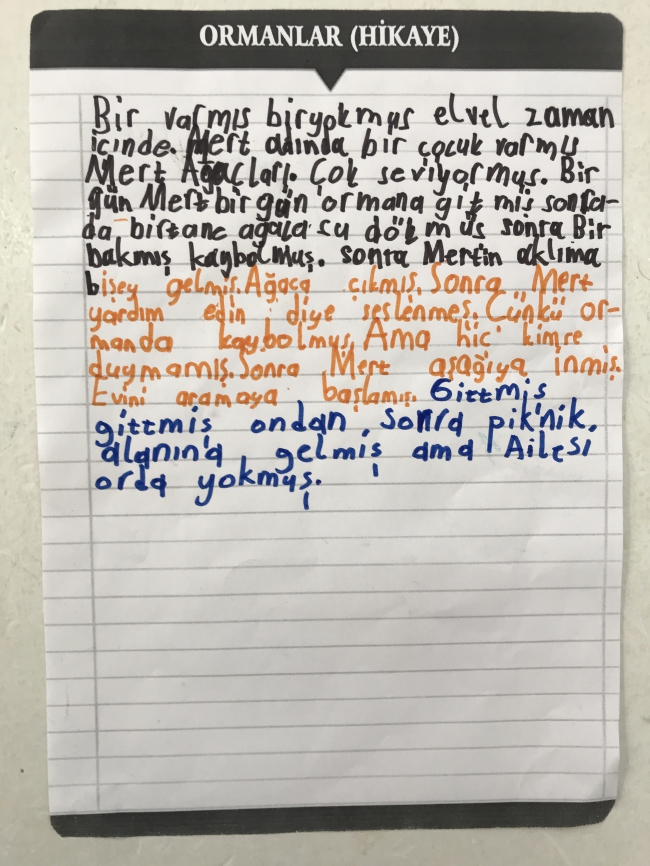 ORMANLAR (HİKAYE)
Bir varmış biryokmuş elvel zaman
içinde. Mert adında bir çocuk varmış
Mert Ağaçları. Çok seviyormuş. Bir
gün Mert bir gün ormana gitmiş sonra-
da birtane ağaca su dökmüş sonra Bir
bakmış kaybolmuş. sonra Mertin aklıma
bişey gelmiş. Ağaça çıkmış. Sonra Mert
yardım edin diye seslenmeş. Çünkü or-
manda kaybolmuş. Ama hiç kimre
duymamış. Sonra Mert aşağıya inmiş.
Evini aramaya başlamış. Gittmiş
gittmiş ondan sonra piknik
alanına gelmiş ama Ailesi
orda yokmuş.